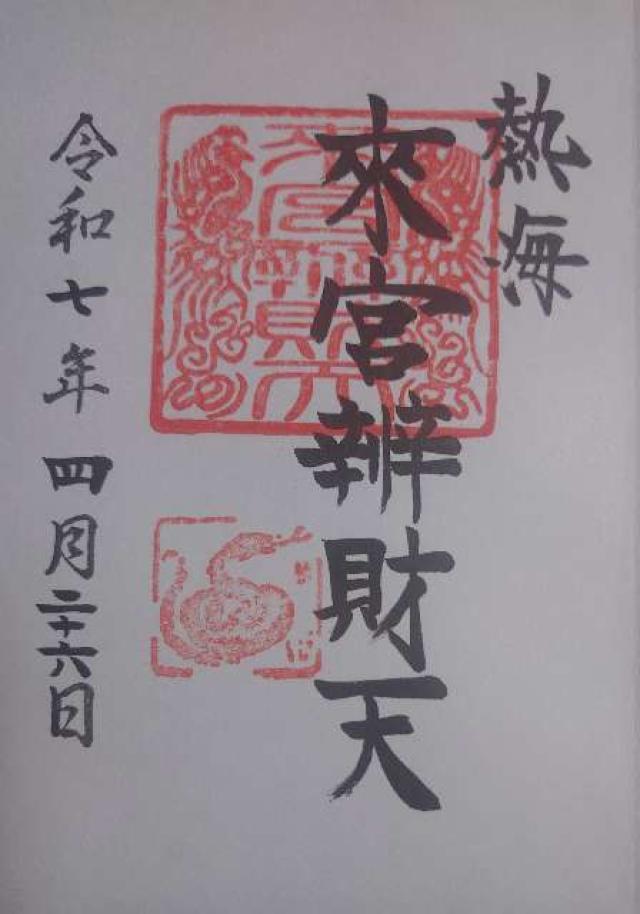 熱海
來宮辨財天
令和七年四月二十六日